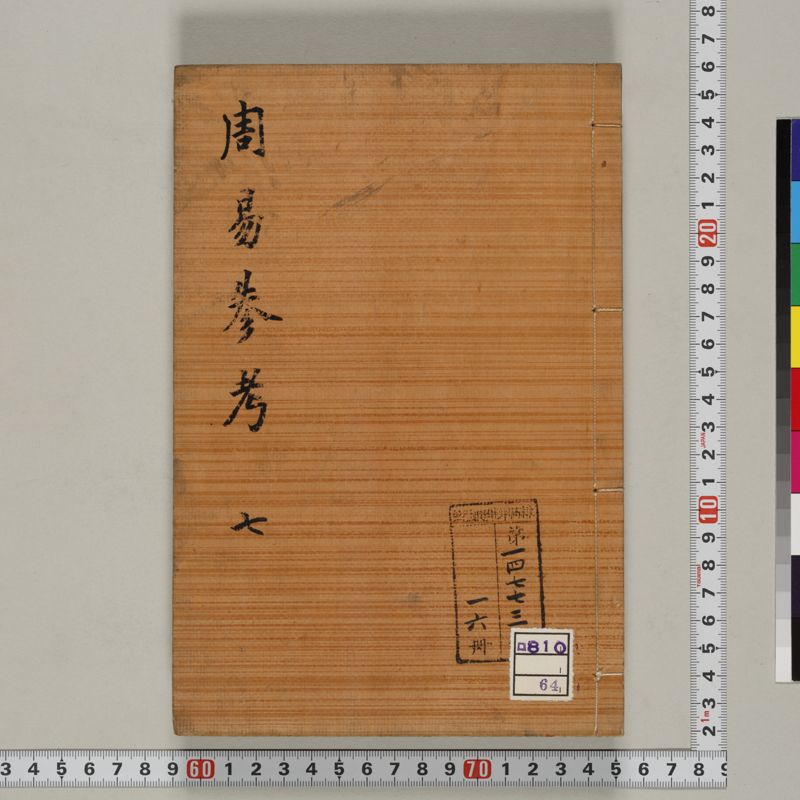 周易参考 七
第一四七七三
一六冊
ロ810
1
64
8 7 6 5 4 3 2 1 20 9 8 7 6 5 4 3 2 1 10 9 8 7 6 5 4 3 2
JAPAN
1m
3 4 5 6 7 8 9 60 1 2 3 4 5 6 7 8 9 70 1 2 3 4 5 6 7 8 9